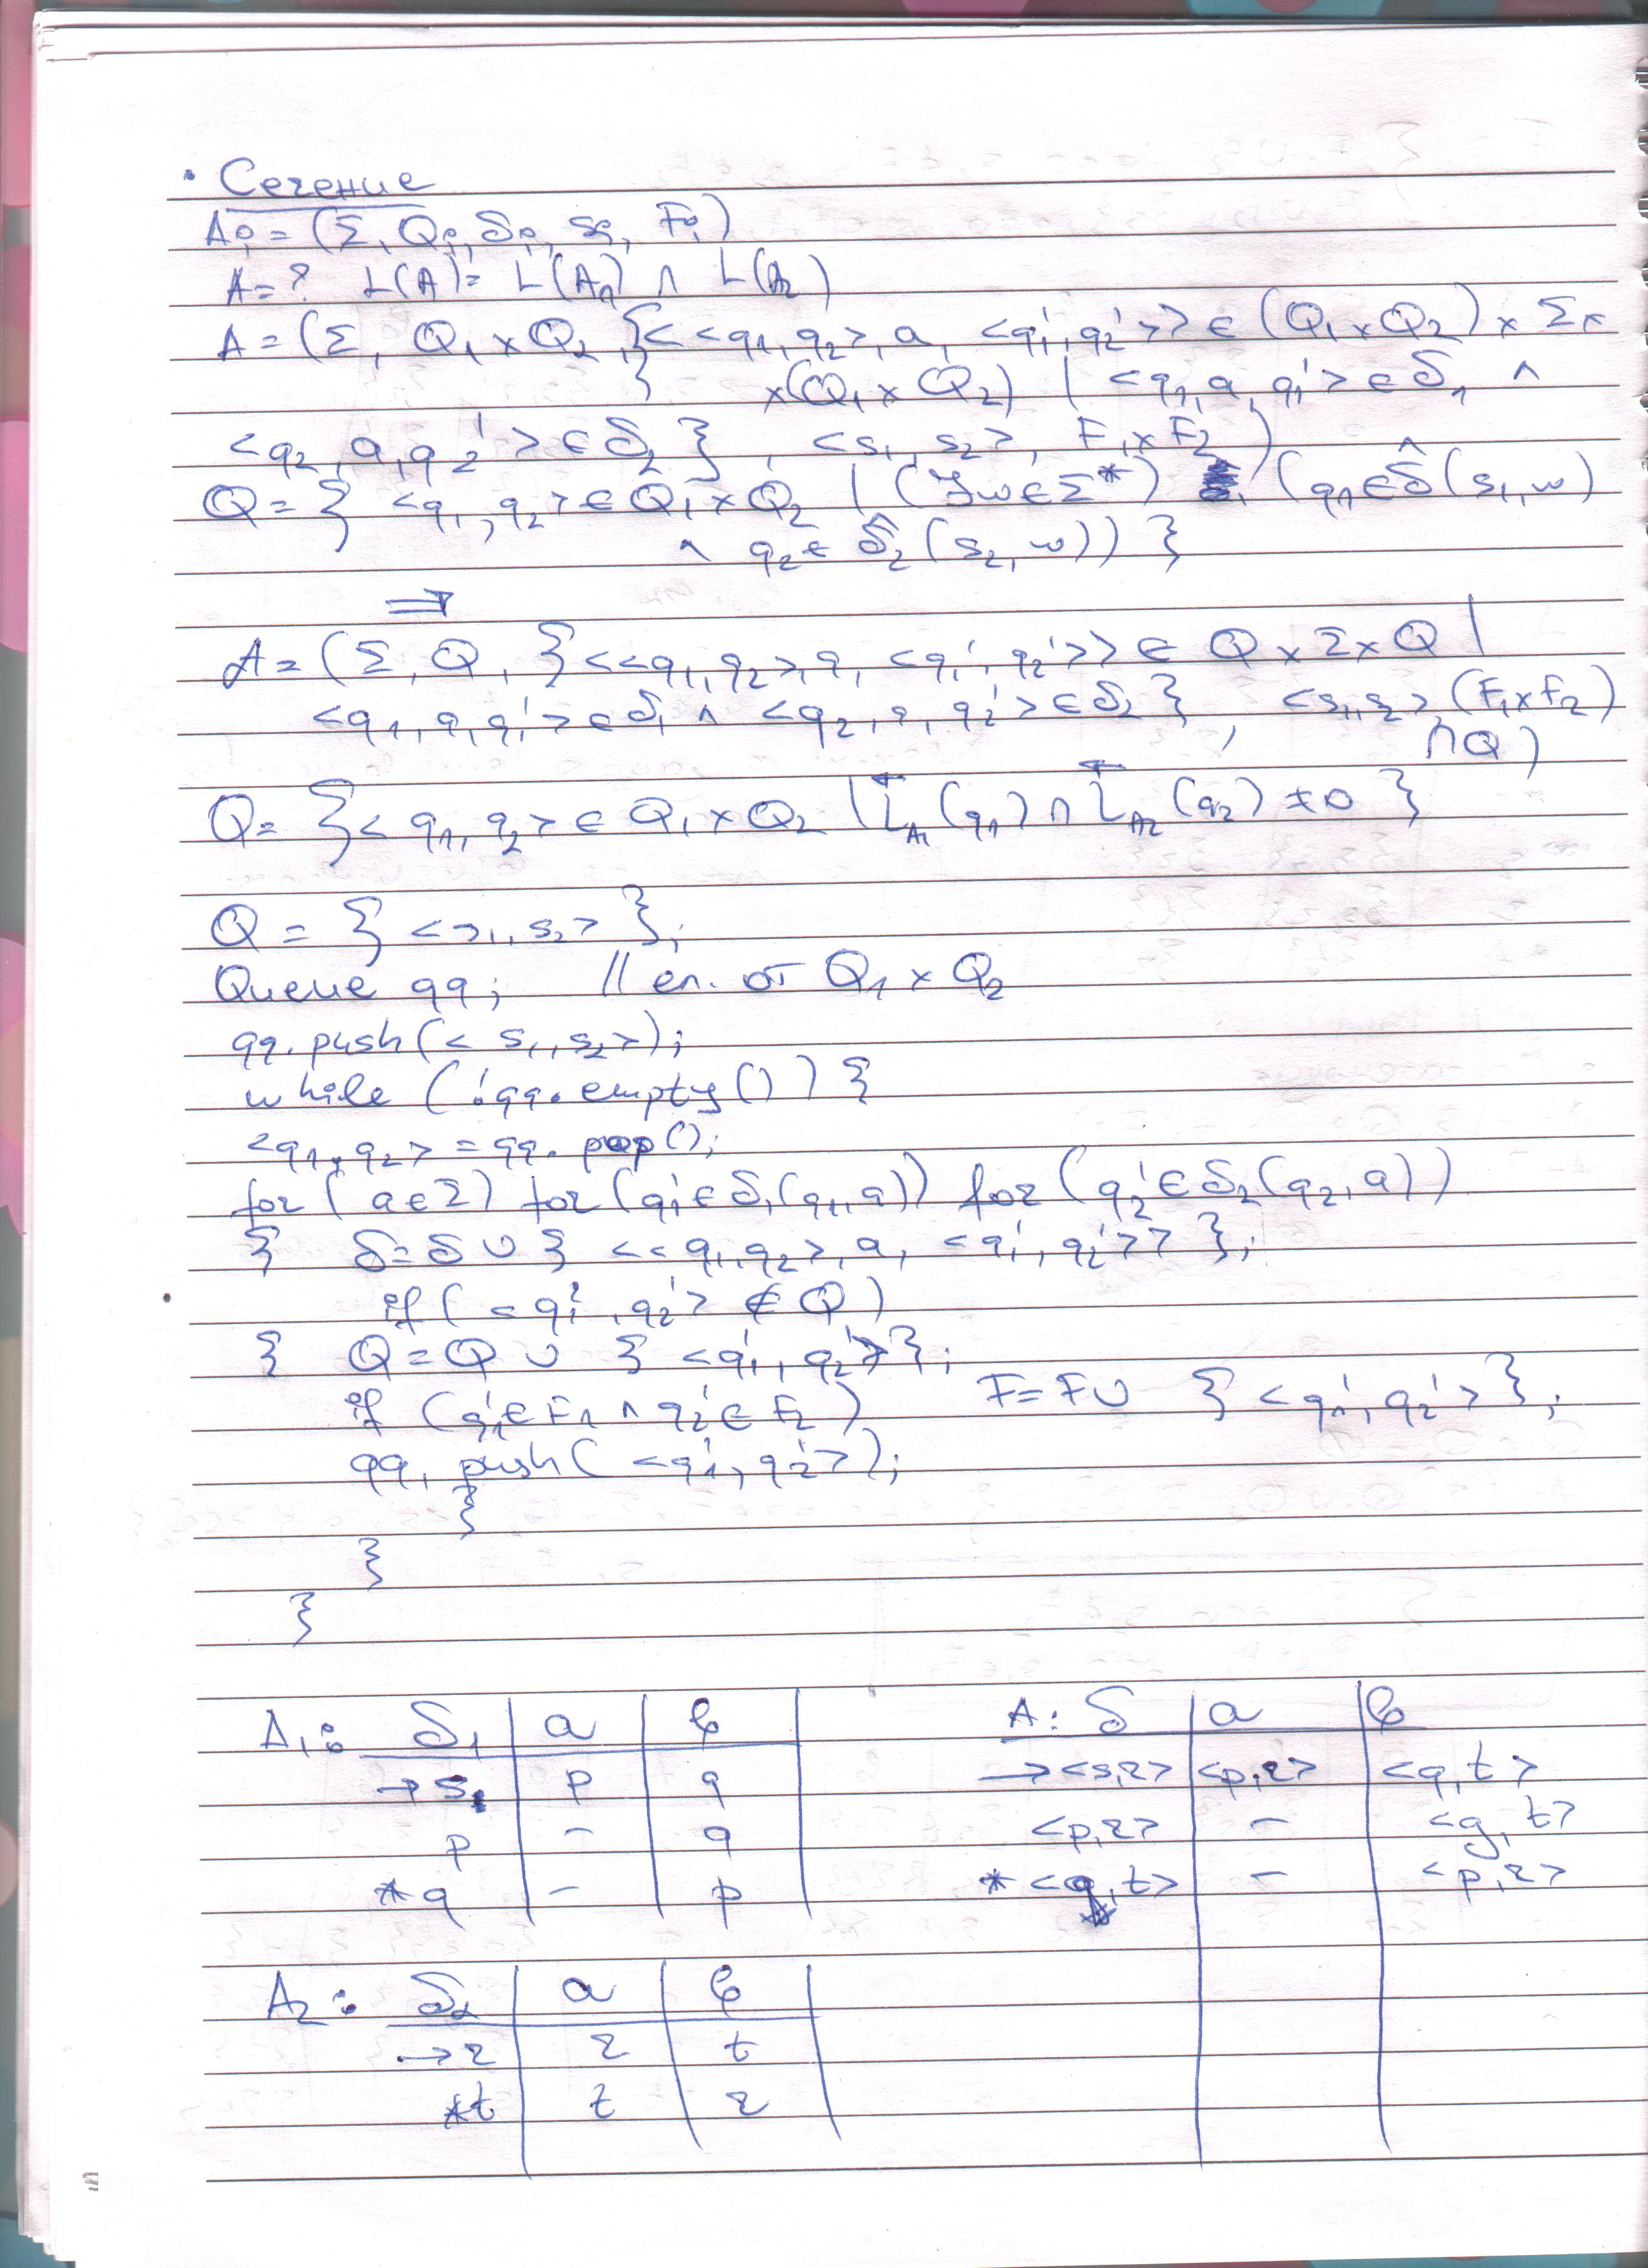 • Сечение
Aᵢ = (Σ, Qᵢ, δᵢ, sᵢ, Fᵢ)
A = ? L(A) = L(A₁) ∩ L(A₂)
A = (Σ, Q₁ × Q₂, {< <q₁, q₂>, a, <q₁', q₂'> > ∈ (Q₁ × Q₂) × Σ ×
× (Q₁ × Q₂) | <q₁, a, q₁'> ∈ δ₁ ∧
<q₂, a, q₂'> ∈ δ₂ }, <s₁, s₂>, F₁ × F₂)
Q = { <q₁, q₂> ∈ Q₁ × Q₂ | (∃w ∈ Σ*) (q₁ ∈ δ̂(s₁, w)
∧ q₂ ∈ δ̂₂(s₂, w)) }
⇒
A = (Σ, Q, {< <q₁, q₂>, a, <q₁', q₂'> > ∈ Q × Σ × Q |
<q₁, a, q₁'> ∈ δ₁ ∧ <q₂, a, q₂'> ∈ δ₂ }, <s₁, s₂>, (F₁ × F₂)
∩ Q)
Q = {< q₁, q₂> ∈ Q₁ × Q₂ | L⃖_A₁(q₁) ∩ L⃖_A₂(q₂) ≠ 0 }
Q = { <s₁, s₂> };
Queue qq; // ел. от Q₁ × Q₂
qq.push(< s₁, s₂>);
while (!qq.empty()) {
<q₁, q₂> = qq.pop();
for (a ∈ Σ) for (q₁' ∈ δ₁(q₁, a)) for (q₂' ∈ δ₂(q₂, a))
{ δ = δ ∪ { < <q₁, q₂>, a, <q₁', q₂'> > };
if (<q₁', q₂'> ∉ Q)
{ Q = Q ∪ { <q₁', q₂'> };
if (q₁' ∈ F₁ ∧ q₂' ∈ F₂) F = F ∪ { <q₁', q₂'> };
qq.push( <q₁', q₂'>);
}
}
}
A₁: δ₁ a b
→ s p q
p – q
* q – p
A: δ a b
→ <s,r> <p,r> <q,t>
<p,r> – <q,t>
* <q,t> – <p,r>
A₂: δ₂ a b
→ r r t
* t t r